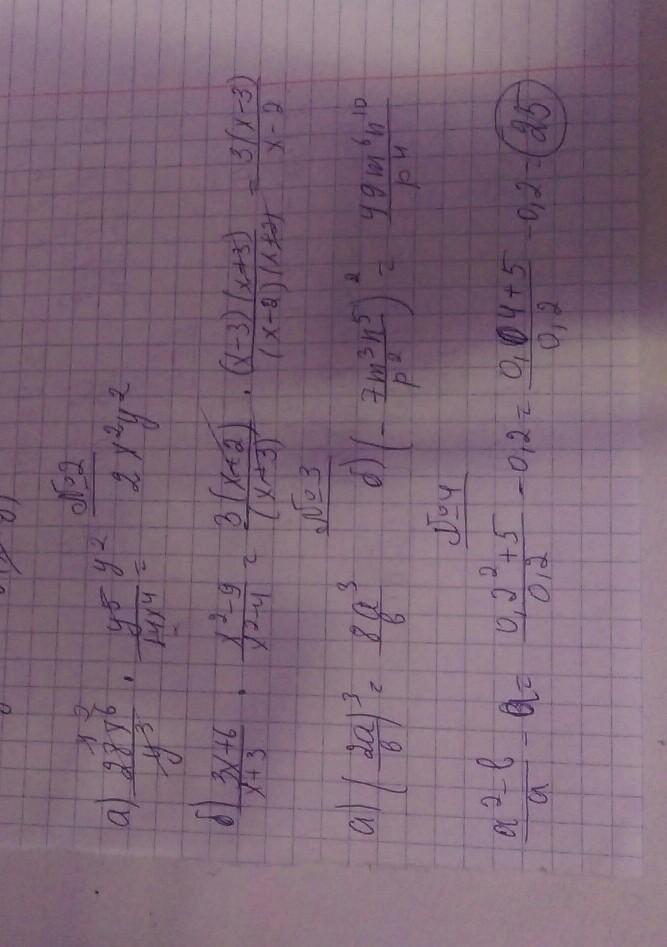 №2
а) 28x⁶/y³ · y⁵/14x⁴ = 2x²y²
б) 3x+6/x+3 · x²-9/x²-4 = 3(x+2)/(x+3) · (x-3)(x+3)/(x-2)(x+2) = 3(x-3)/x-2
№3
а) (2a/b)³ = 8a³/b б) (-7m³n⁵/p²)² = 49m⁶n¹⁰/p⁴
№4
a²-b/a - a = 0,2²+5/0,2 - 0,2 = 0,04+5/0,2 - 0,2 = 25